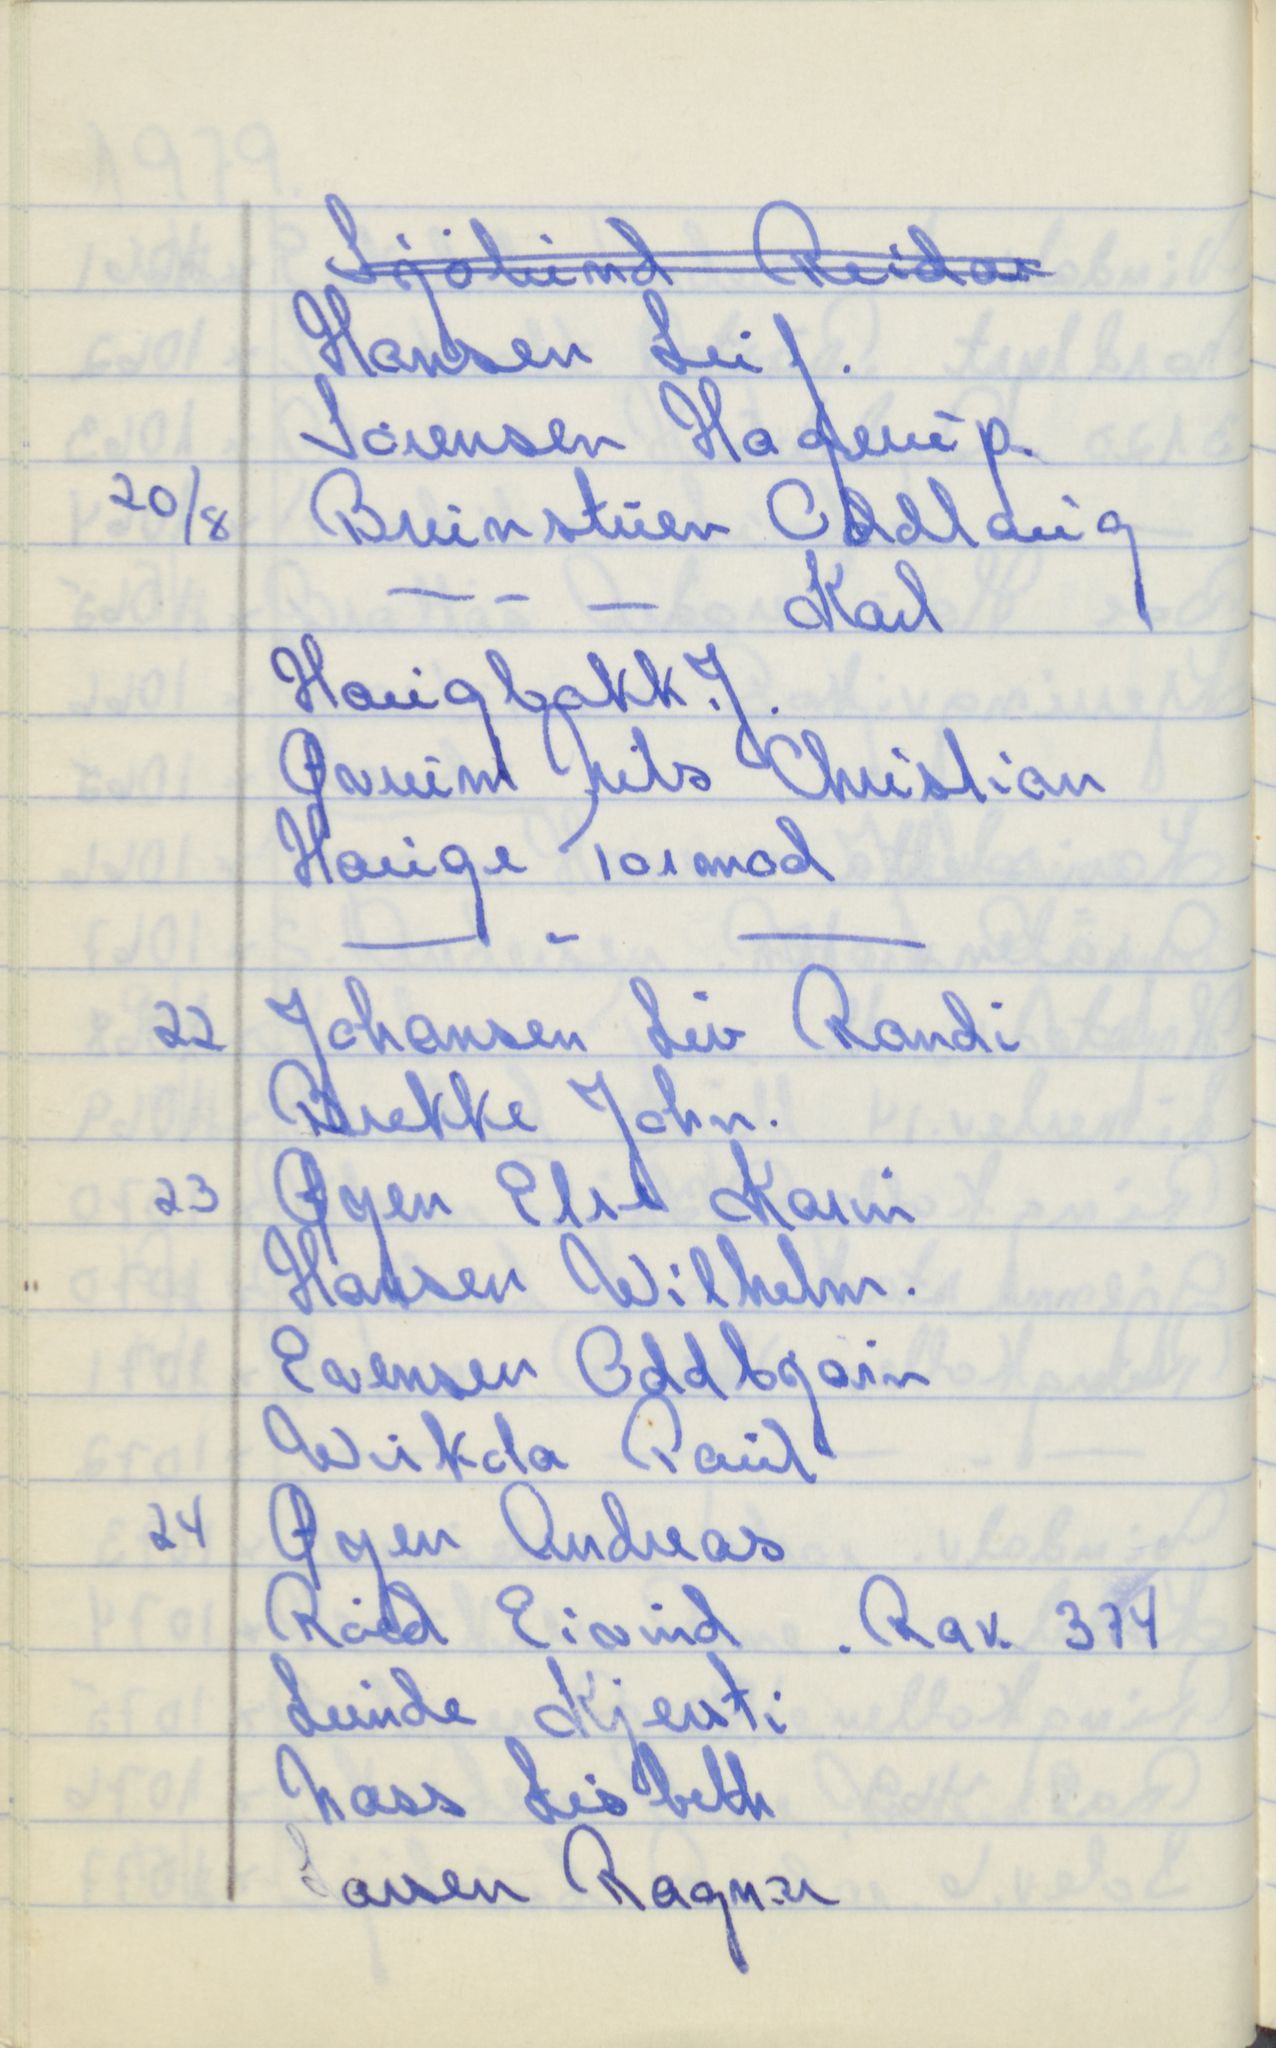 Sjölund Reidar
Hansen Leif.
Sørensen Hagerup.
20/8 Brunstuen Oddlaug
— - — Karl
Haugbakk J.
Øvrum Nils Christian
Hauge Tormod
— - —
22 Johansen Liv Randi
Brekke John.
23 Øyen Else Karin
Hansen Wilhelm.
Evensen Oddbjørn
Wirkola Paul
24 Øyen Andreas
Röed Eivind . Rav. 374
Lunde Kjersti
Nass Lisbeth
Larsen Ragnar